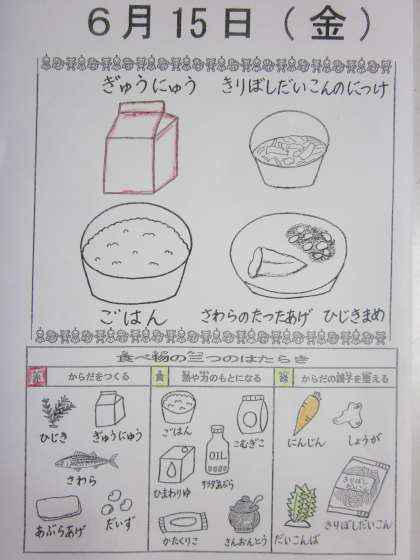 6月15日(金)
ぎゅうにゅう きりぼしだいこんのにつけ
ごはん さわらのたつたあげ ひじきまめ
食べ物の三つのはたらき
赤 からだをつくる 黄 熱や力のもとになる 緑 からだの調子を整える
ひじき ぎゅうにゅう ごはん こむぎこ にんじん しょうが
OIL
さわら ひまわりゆ サラダあぶら
きりぼし
だいこん
あぶらあげ だいず かたくりこ さんおんとう だいこんば きりぼしだいこん